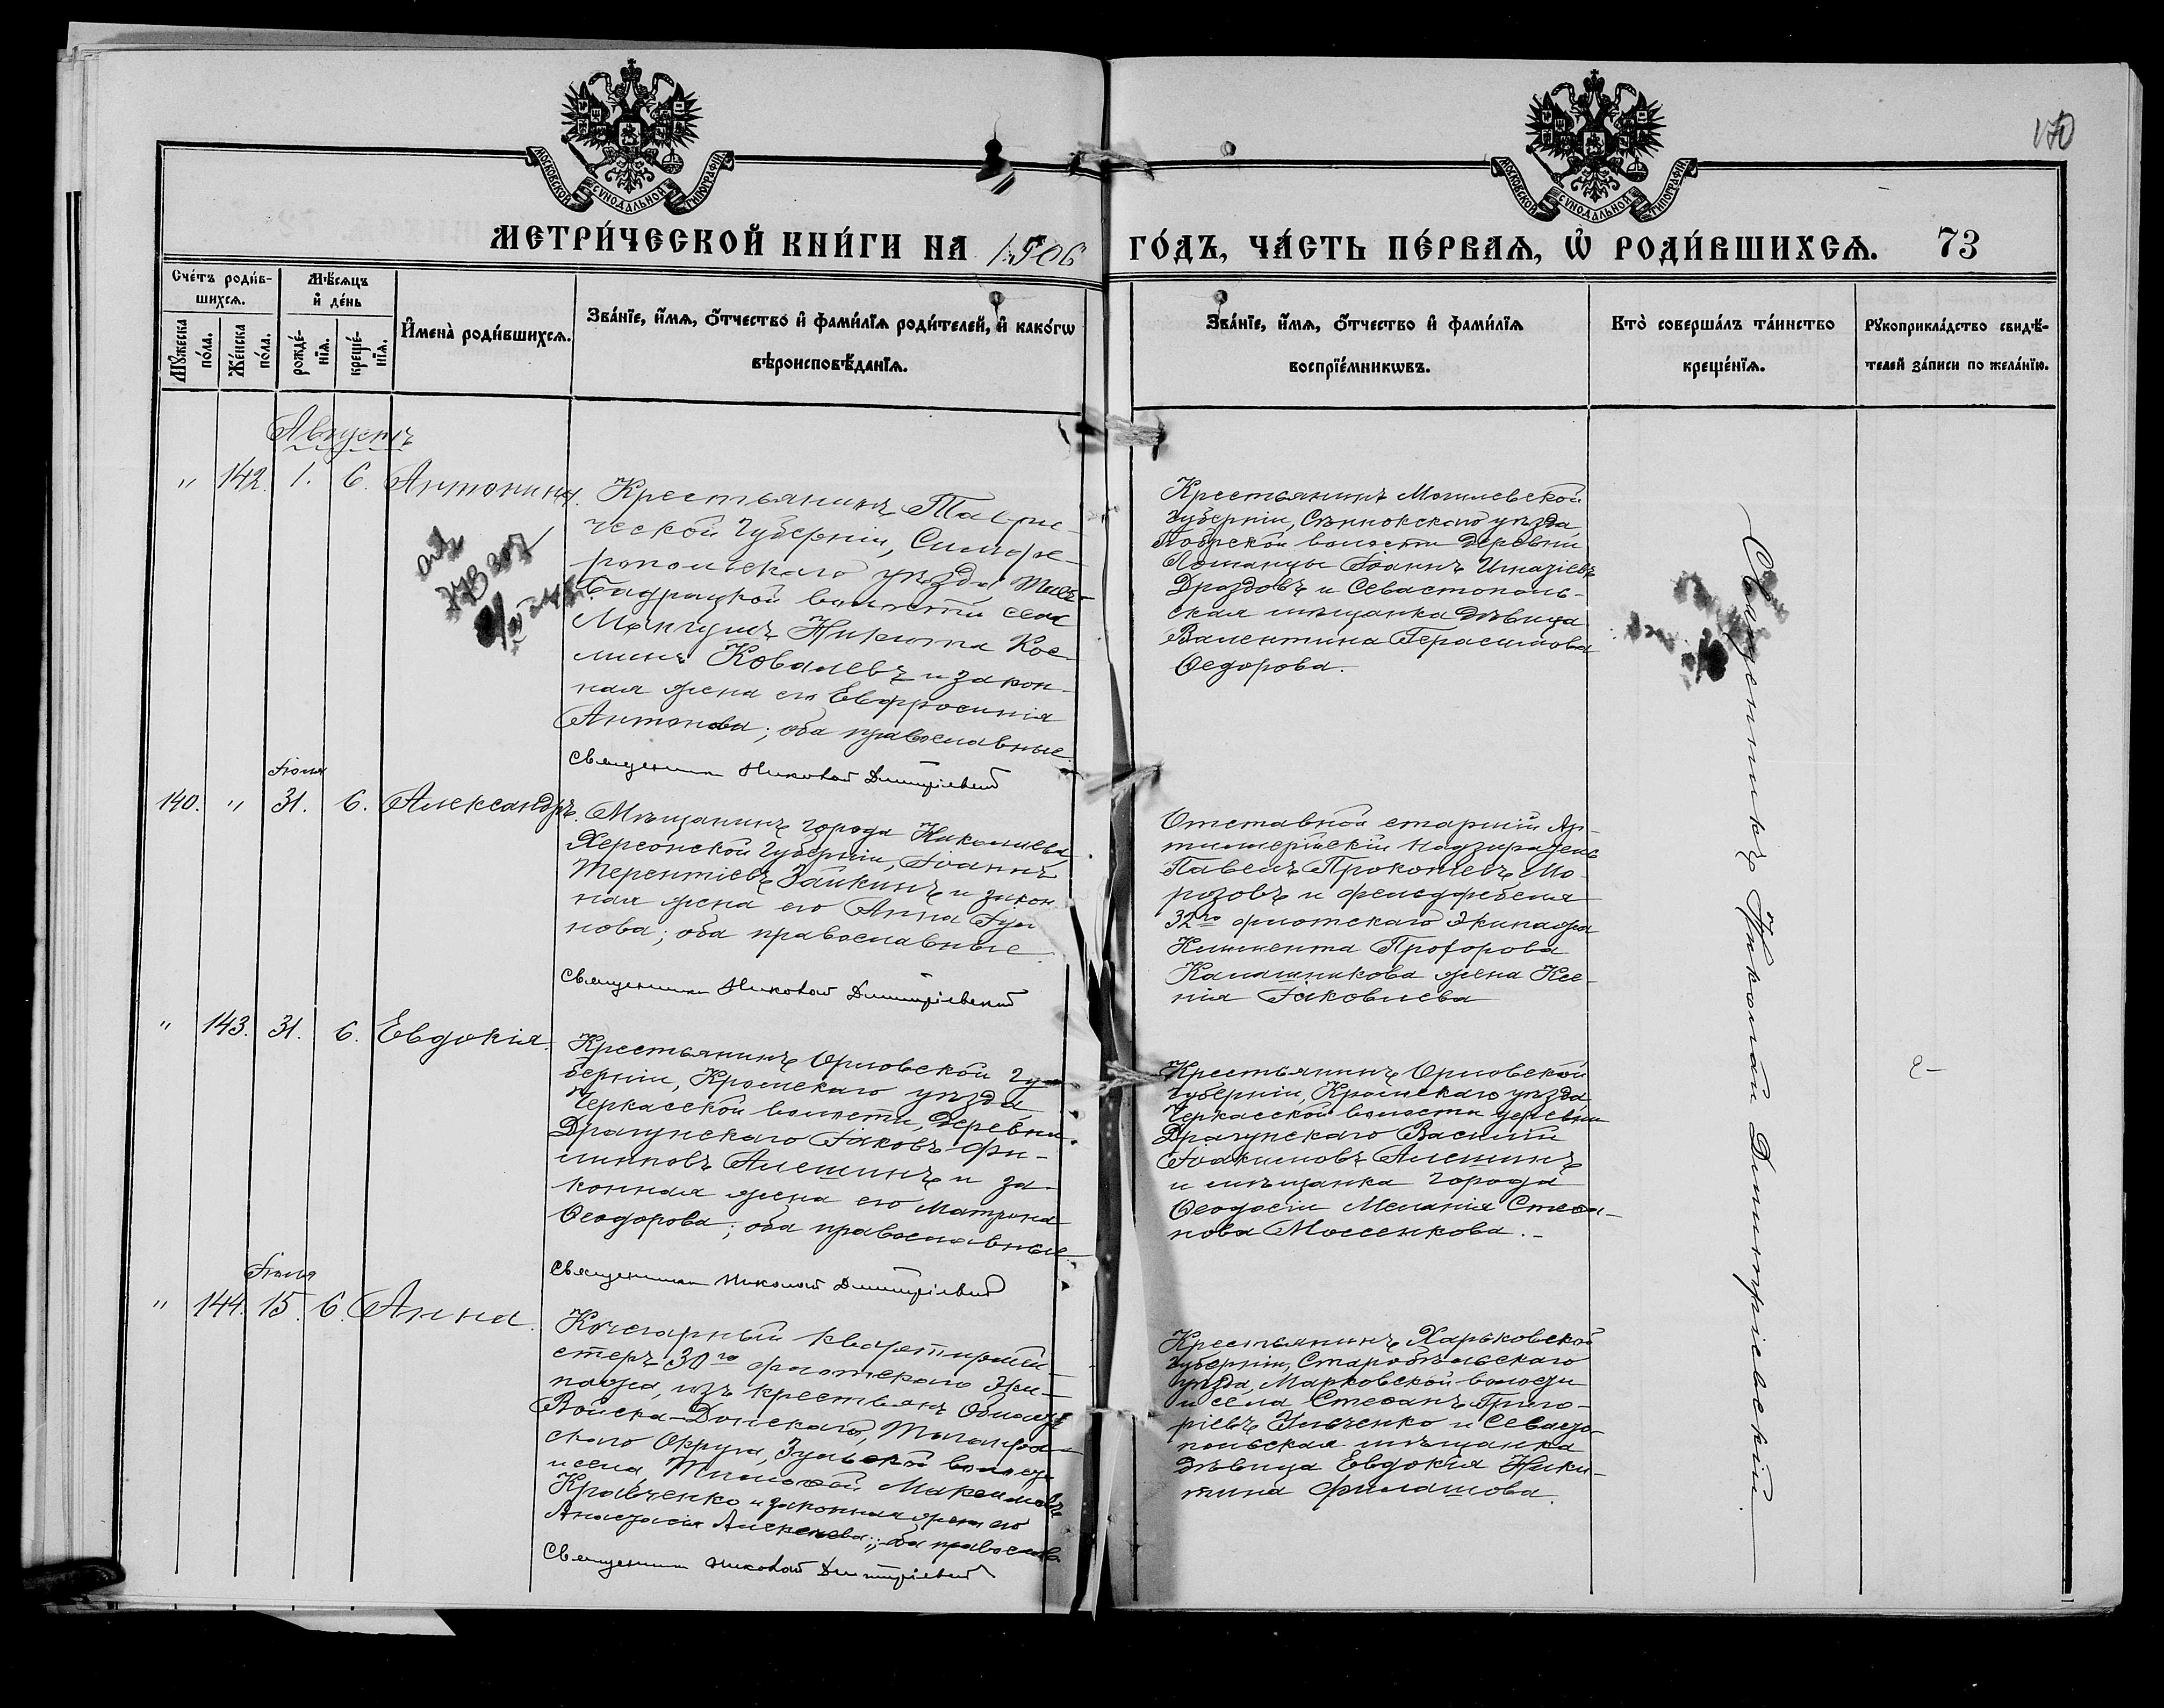 МОСКОВСКОЙ СѴНОДАЛЬНОЙ ТИПОГРАФІИ
МОСКОВСКОЙ СѴНОДАЛЬНОЙ ТИПОГРАФІИ
МЕТРИ́ЧЕСКОЙ КНИ́ГИ НА 1906 ГО́ДЪ, ЧА́СТЬ ПЕ́РВАѦ, Ѡ҆ РОДИ́ВШИХСѦ. 73
Сче́тъ роди́в-
шихсѧ.
Мꙋ́жеска
по́ла.
Же́нска
по́ла.
Мѣ́сѧцъ
и҆ де́нь
рожде́-
нїѧ.
креще́-
нїѧ.
И҆мена̀ роди́вшихсѧ.
Зва́нїе, и҆́мѧ, ѻ҆́тчество и҆ фами́лїѧ роди́телей, и҆ како́гѡ
вѣроисповѣ́данїѧ.
Зва́нїе, и҆́мѧ, ѻ҆́тчество и҆ фами́лїѧ
воспрїе́мникѡвъ.
Кто̀ соверша́лъ та́инство
креще́нїѧ.
Рꙋкоприкла́дство свидѣ́-
телей за́писи по жела́нїю.
Августъ
" 142. 1. 6. Антонина.
Крестьянинъ Таври-
ческой Губерніи, Симфе-
ропольскаго уѣзда
Бадракской волости села
Мангушъ Никита Кос-
минъ Ковалевъ и закон-
ная жена его Евфросинія
Антонова; оба православные.
Священникъ Николай Димитріевскій
Крестьянинъ Могилевской
губерніи, Сѣннскаго уѣзда
волости деревни
Іоаннъ Игнатіевъ
Дроздовъ и Севастополь-
ская мѣщанка дѣвица
Валентина Герасимова
Ѳедорова.
Священникъ Николай Димитріевскій
Іюля
140. " 31. 6. Александръ.
Мѣщанинъ города Николаева,
Херсонской губерніи, Іоаннъ
Терентіевъ Зайкинъ и закон
ная жена его Анна
нова; оба православные.
Священникъ Николай Димитріевскій
Отставной старшій Ар-
тиллерійскій надзиратель
Павелъ Прокопіевъ Мо-
розовъ и фельдфебеля
32го флотскаго Экипажа
Климента Прохорова
Калашникова жена Ксе-
нія Іаковлева
" 143. 31. 6. Евдокія.
Крестьянинъ Орловской Гу-
берніи, Кромскаго уѣзда
Черкасской волости, деревни
Драгунскаго Іаковъ Фи-
липповъ Алешинъ и за-
конная жена его Матрона
Ѳеодорова; оба православные
Священникъ Николай Димитріевскій
Крестьянинъ Орловской
губерніи, Кромскаго уѣзда
Черкасской волости деревни
Драгунскаго Василій
Іоакимовъ Алешинъ
и мѣщанка города
Ѳеодосіи Меланія Стефа-
нова Моссенкова.
Іюля
" 144. 15. 6. Анна.
Кочегарный квартирмей-
стеръ 30го флотскаго Эки-
пажа, изъ крестьянъ Области
Войска-Донскаго, Таганрог-
скаго Округа, волости
и села, Тимофей Максимовъ
Кравченко и законная жена его
Анастасія Алексѣева; оба православ.
Священникъ Николай Димитріевскій
Крестьянинъ Харьковской
губерніи, Старобѣльскаго
уѣзда, Марковской волости
и села Стефанъ Григо-
ріевъ Ильченко и Севасто-
польская мѣщанка
дѣвица Евдокія Ники-
тина Филашова.